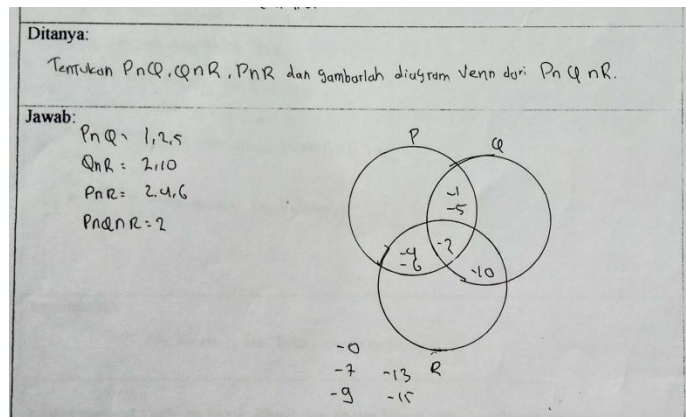 Ditanya:
Tentukan P∩Q, Q∩R, P∩R dan gambarlah diagram Venn dari P∩Q∩R.
Jawab:
P∩Q = 1,2,5
Q∩R = 2,10
P∩R = 2,4,6
P∩Q∩R = 2
P
Q
-1
-5
-4
-6
-2
-10
R
-0
-7 -13
-9 -15